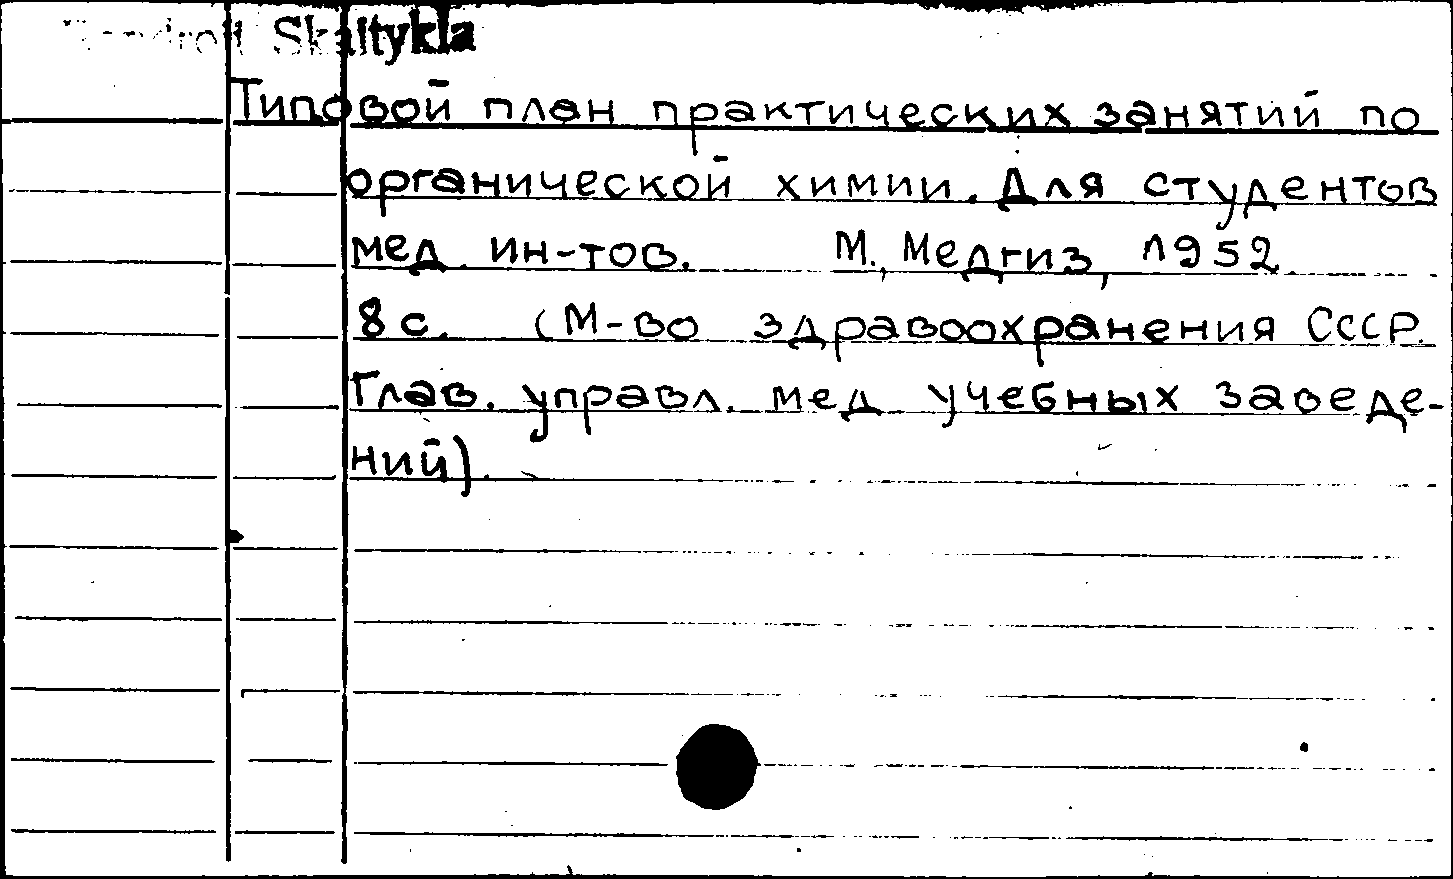 Skaitykla
Типовой план практических занятий по
органической химии. Для студентов
мед. ин-тов. М., Медгиз, 1952.
8 с. (М-во здравоохранения СССР.
Глав. управл. мед. учебных заведе-
ний).